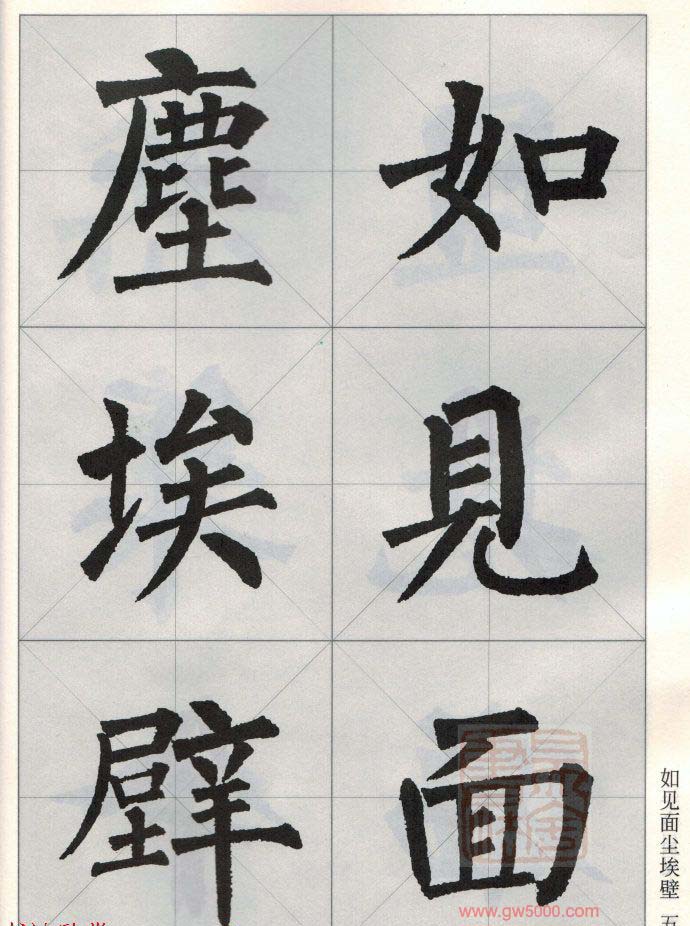 如見面
塵埃壁
如见面尘埃壁
www.gw5000.com